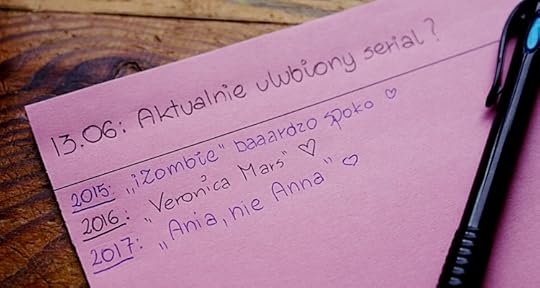 13.06: Aktualnie ulubiony serial?
2015: „iZombie" baaardzo spoko ♡
2016: „Veronica Mars" ♡
2017: „Ania, nie Anna" ♡